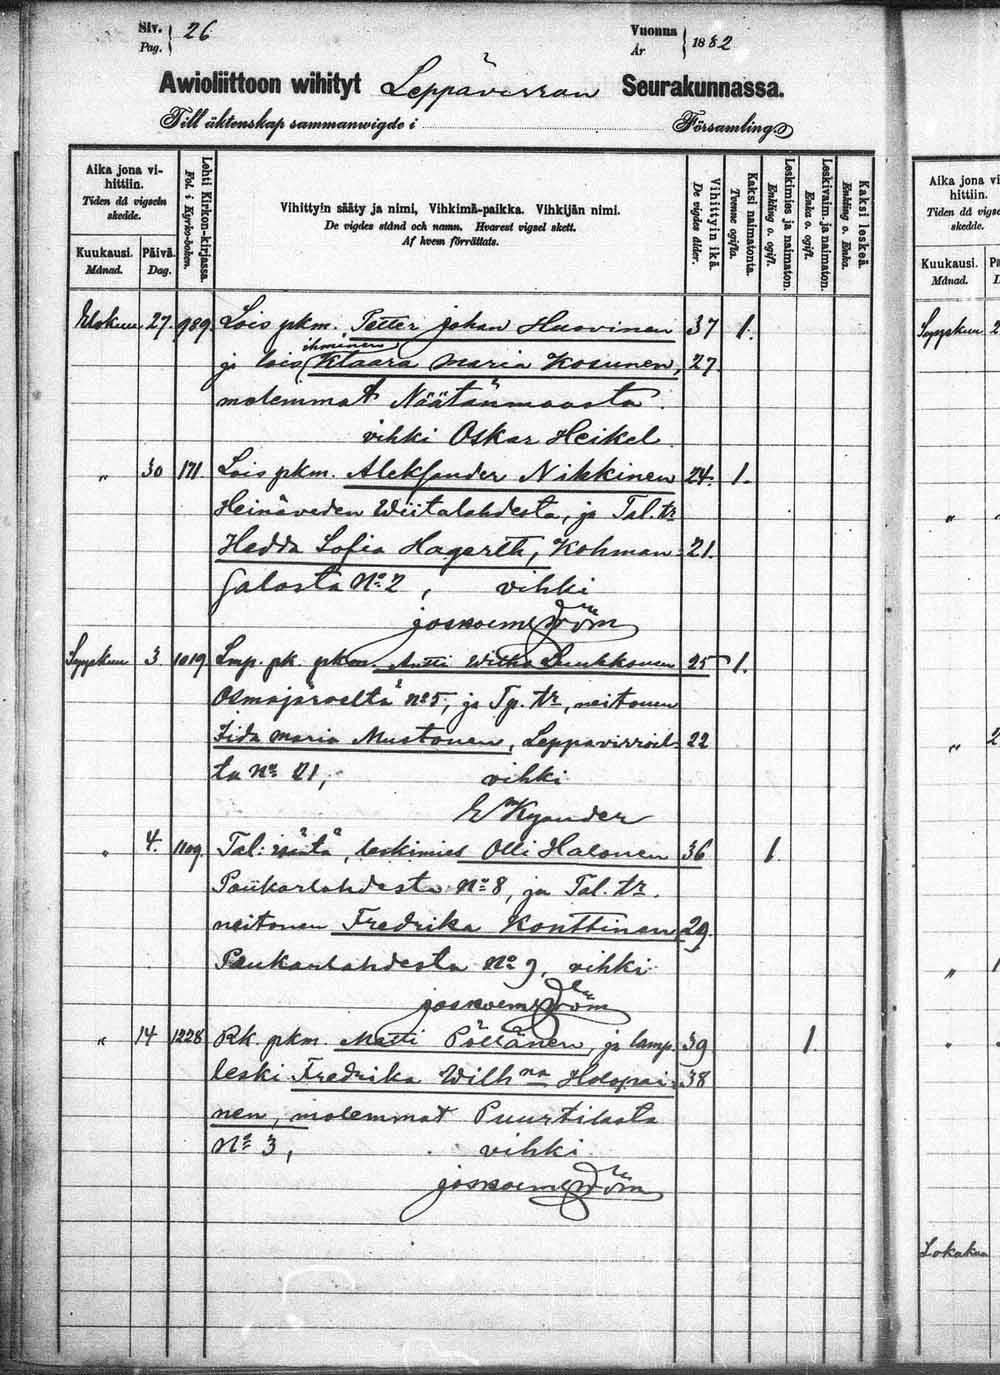 Siv. 26
Pag.
Vuonna 1882
År
Awioliittoon wihityt Leppävirran Seurakunnassa.
Till äktenskap sammanwigde i Församling
Aika jona vihittiin.
Tiden då vigseln skedde.
Kuukausi. Månad.
Päivä. Dag.
Lehti Kirkon-kirjassa.
Fol. i Kyrko-boken.
Vihittyin sääty ja nimi, Vihkimä-paikka. Vihkijän nimi.
De vigdes stånd och namn. Hvarest vigsel skett.
Af hvem förrättats.
Vihittyin ikä.
De vigdes ålder.
Kaksi naimatonta.
Tvenne ogifta.
Leskimies ja naimaton.
Enkling o. ogift.
Leskivaim. ja naimaton.
Enka o. ogift.
Kaksi leskeä.
Enkling o. Enka.
Elokuu 27. 989. Lois pkm. Petter Johan Husvinen 37 1.
ihminen
ja lois Klaara Maria Kosunen, 27
molemmat Näätänmaasta.
vihki Oskar Heikel
" 30 171. Lois pkm. Aleksander Nikkinen 24. 1.
Heinäveden Wiitalahdesta, ja Tal. tr
Hedda Sofia Hagerth, Kohman- 21.
salosta No 2, vihki
Syyskuu 3 1019 Lmp. pk. pkm. Antti Wilho Luukkonen 25 1.
Osmajärveltä No 5, ja Tp. tr, neitonen
Iida Maria Mustonen, Leppävirroil- 22
ta No 21, vihki
E W Kyander
" 4. 1109. Tal: isäntä, leskimies Olli Halonen 36 1.
Paukarlahdesta No 8, ja Tal. tr.
neitonen Fredrika Konttinen 29.
Paukarlahdesta No 9, vihki
" 14 1228 Rk. pkm. Matti Pöllänen, ja lamp. 39 1.
leski Fredrika Wilhna Holopai- 38
nen, molemmat Puurtilasta
No 3, vihki
Aika jona vi
hittiin.
Tiden då vigse
skedde.
Kuukausi. Pä
Månad. D
Syyskuu 2
" 2
" 1
Lokakuu